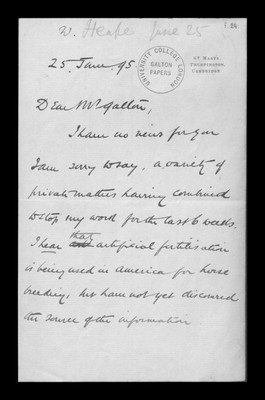 W. Heape June 25
25. June 95
UNIVERSITY COLLEGE LONDON
GALTON PAPERS
TRUMPINGTON,
CAMBRIDGE.
Dear Mr Galton,
I have no news for you
I am sorry to say, a variety of
private matters having combined
to stop my work for the last 6 weeks.
I hear that artificial fertilisation
is being used in America for horse
breeding, but have not yet discovered
the source of the information